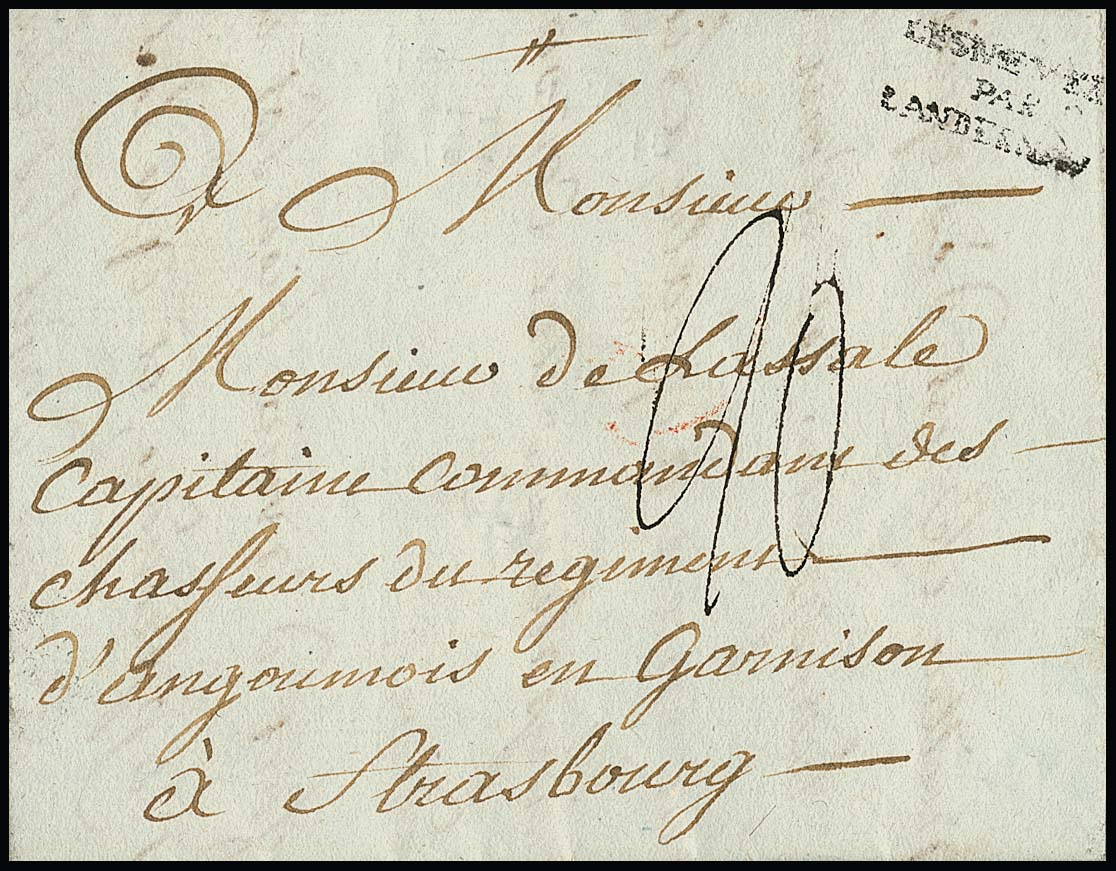 LESNEVEN
PAR
LANDERNAU
A Monsieur
20
Monsieur de Lassale
capitaine commandant des
chasseurs du regiment
d'angoumois en Garnison
à Strasbourg